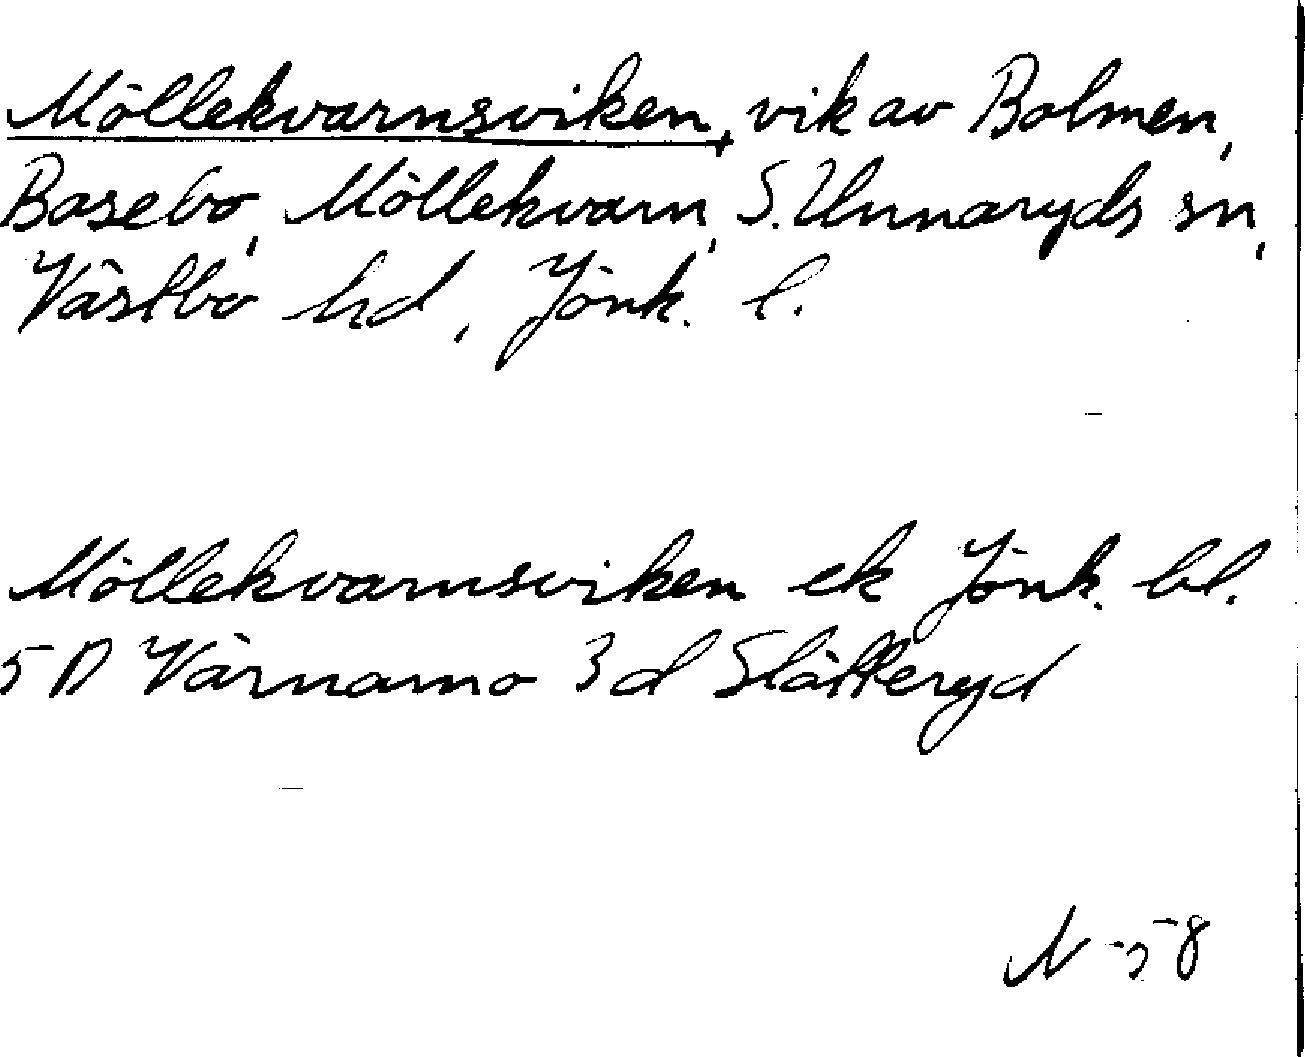 Möllekvarnsviken, vik av Bolmen,
Basebo, Möllekvarn, S. Unnaryds sn,
Västbo hd, Jönk. l.
Möllekvarnsviken ek Jönk. bl.
5 D Värnamo 3 d Slätteryd
N -58